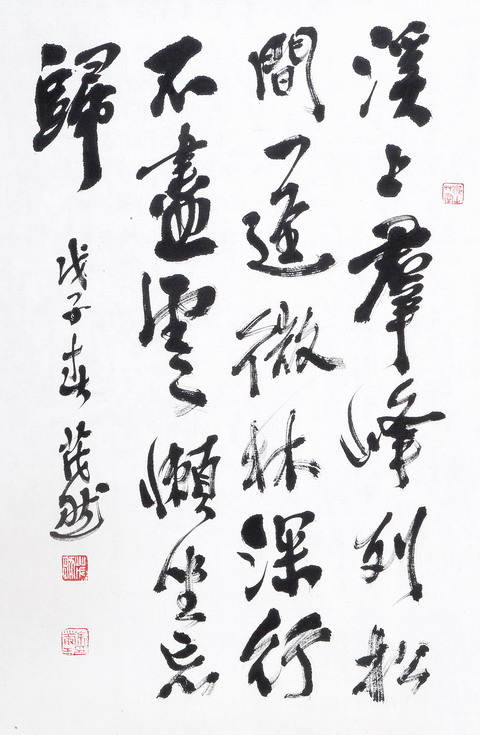 溪上羣峰列松
間一逕微林深行
不盡雲懶坐忘
歸
戊子春 茂